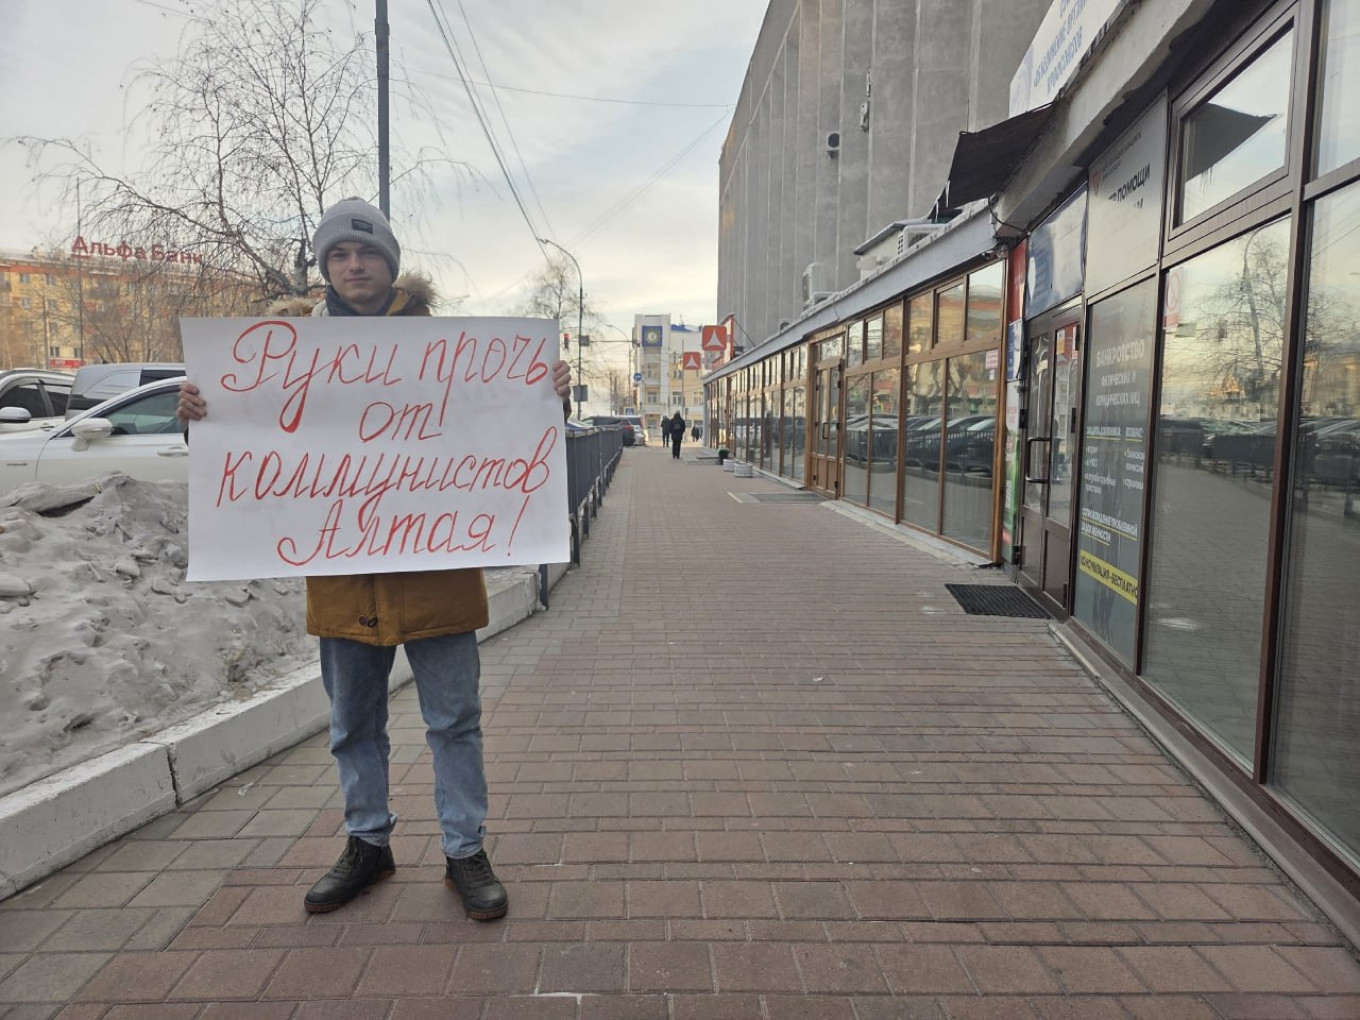 Альфа Банк
Руки прочь
от
коммунистов
Алтая!
ПОМОЩИ
БАНКРОТСТВО
ФИЗИЧЕСКИХ И
ЮРИДИЧЕСКИХ ЛИЦ
КОНСУЛЬТАЦИЯ - БЕСПЛАТНО